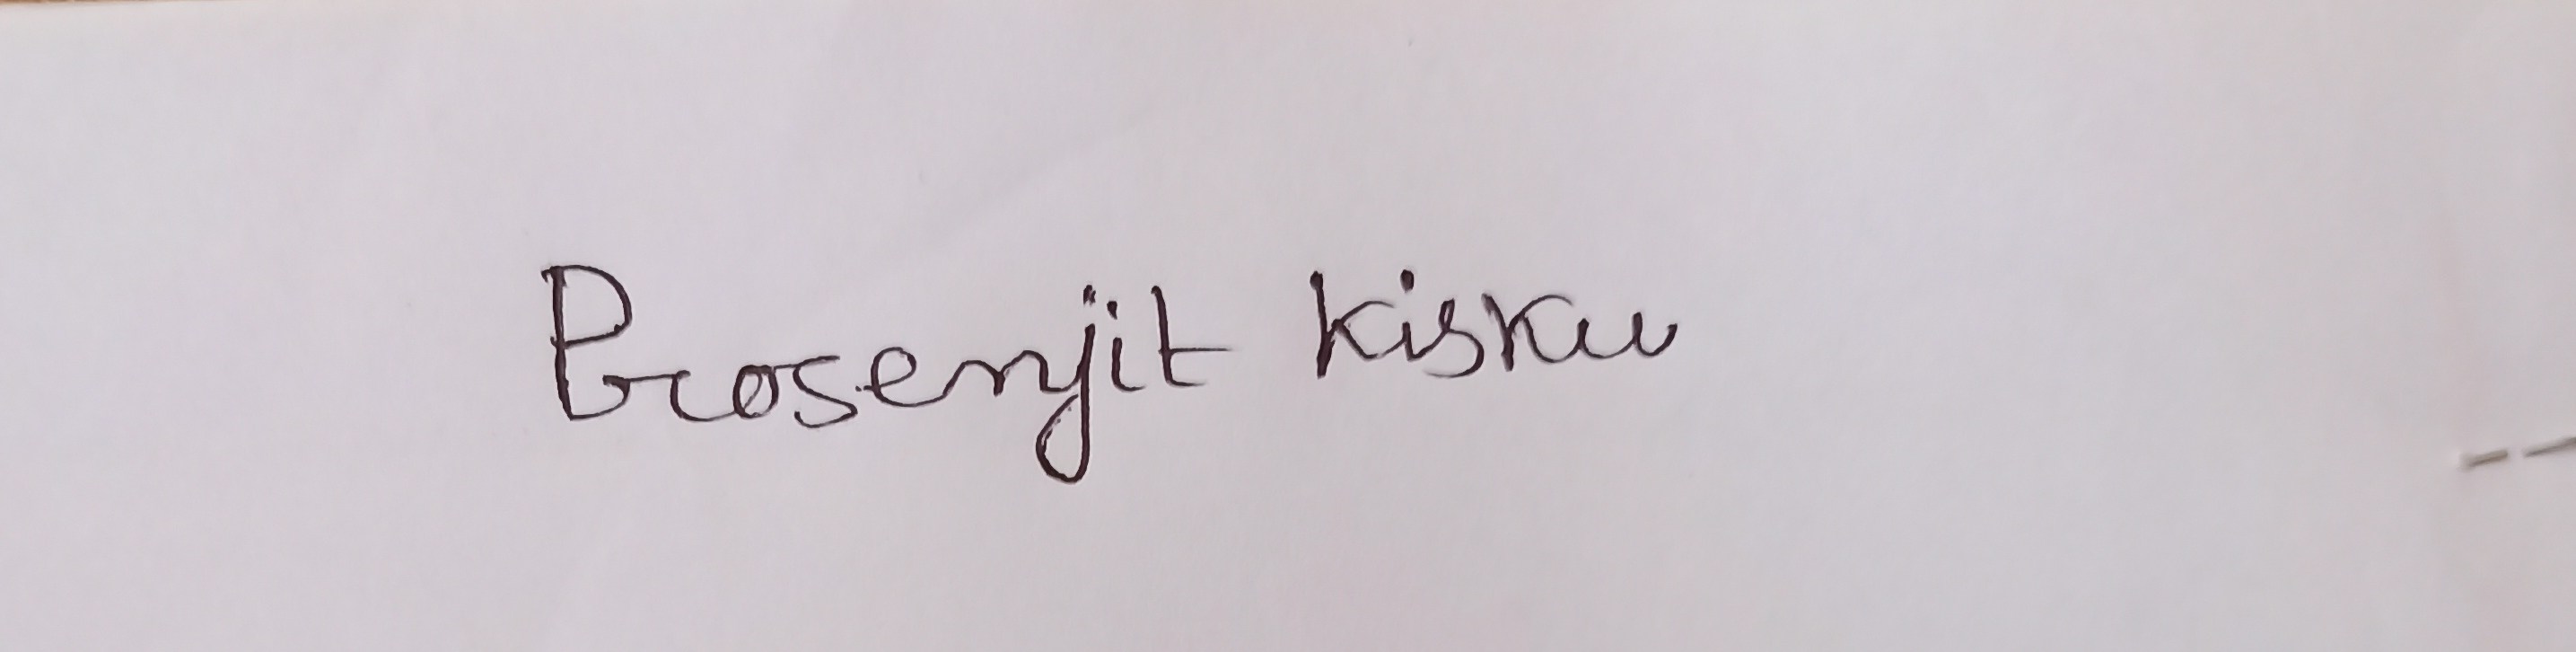 Prosenjit Kisku